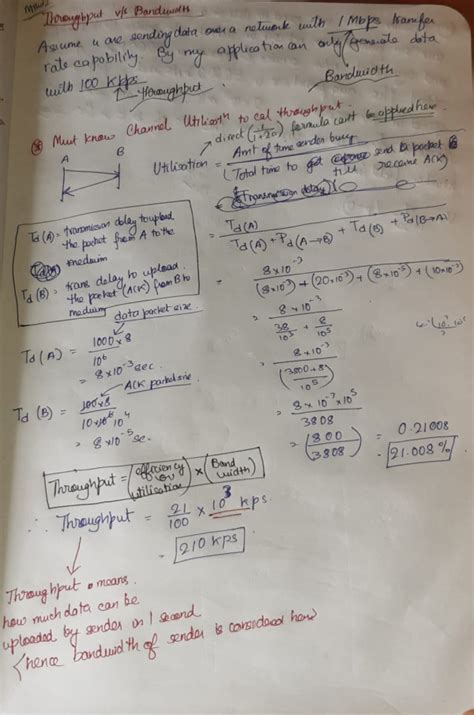 Throughput v/s Bandwidth
Assume u are sending data over a network with 1 Mbps transfer
rate capability. By my application can only generate data
with 100 Kbps
Throughput.
Bandwidth
Must know Channel Utilisatn to cal throughput.
direct (1/1+2a) formula can't be applied here.
A B
Utilisation = Amt of time sender busy
(Total time to send a packet till receive ACK)
Td(A) = transmission delay to upload
the packet from A to the
medium
Td(B) = trans delay to upload
the packet (ACK) from B to
medium
= Td(A) / Td(A) + Pd(A→B) + Td(B) + Pd(B→A)
= 8×10^-3 / (8×10^-3) + (20×10^-3) + (8×10^-5) + (10×10^-3)
data packet size
Td(A) = 1000×8 / 10^6
= 8×10^-3 sec.
= 8×10^-3 / 38/10^3 + 8/10^5
= 8×10^-3 / (3800+8 / 10^5)
ACK packet size
Td(B) = 100×8 / 10×10^6 10^4
= 8×10^-5 sec.
= 8×10^-7×10^5 / 3808
= (800 / 3808) = 0.21008
= 21.008%
Throughput = (efficiency or utilisation) × (Band width)
∴ Throughput = 21/100 × 10^3 kps.
= 210 kps
Throughput means
how much data can be
uploaded by sender in 1 second
(hence bandwidth of sender is considered here)